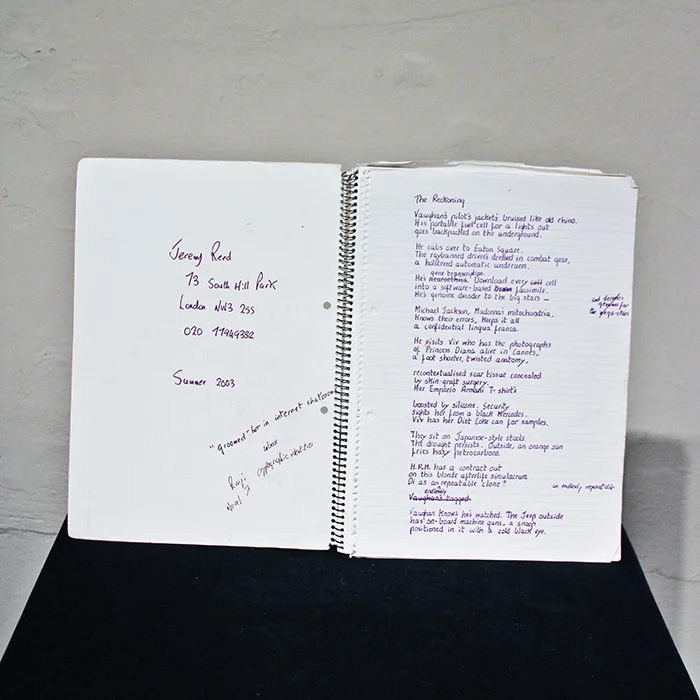 Jeremy Reed
73 South Hill Park
London NW3 2SS
020 77949382
Summer 2003
"groomed" her in internet chatroom
The Reckoning
Vaughan's pilot's jacket's bruised like old rhino.
His portable fuel cell for a lights out
goes backpacked on the underground.
He cabs over to Eaton Square.
The raybanned driver's dressed in combat gear,
a holstered automatic underarm.
gene transcription.
His neuroethics. Download every cell cell
into a software-based facsimile.
His genome decoder to the big stars —
Michael Jackson, Madonna's mitochondria.
Knows their errors, keeps it all
a confidential lingua franca.
He visits Viv who has the photographs
of Princess Diana alive in Cannes,
a foot shorter, twisted anatomy.
recontextualised scar tissue concealed
by skin-graft surgery.
Her Emporio Armani T-shirt's
boosted by silicone. Security
sights her from a black Mercedes.
Viv has her Diet Coke can for samples.
They sit on Japanese-style stools.
The drought persists. Outside, an orange sun
fries hazy petrocarbons.
H.R.H. has a contract out
on this blonde afterlife simulacrum
Di as an repeatable clone?
endlessly
Vaughan's tagged
in endlessly repeatable
Vaughan knows he's watched. The Jeep outside
has on-board machine guns, a snoop
positioned in it with a cold black eye.